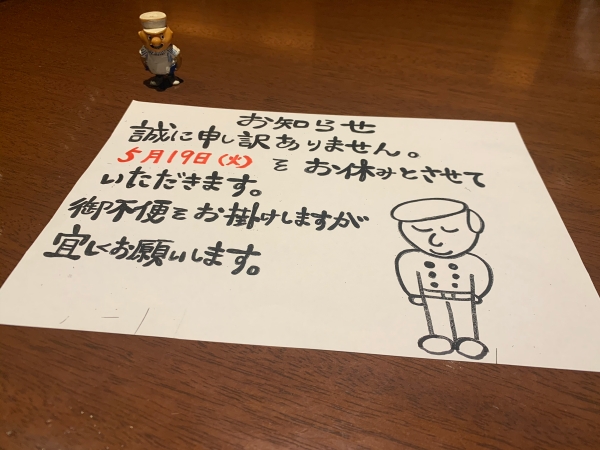 お知らせ
誠に申し訳ありません。
5月19日(火)をお休みとさせて
いただきます。
御不便をお掛けしますが
宜しくお願いします。